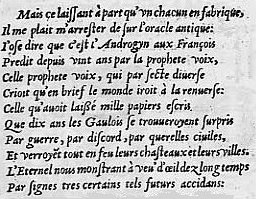 Mais ce laissant à part qu'vn chacun en fabrique,
Il me plait m'arrester dessur l'oracle antique:
I'ose dire que c'est l'Androgyn aux François
Predit depuis vint ans par la prophete voix,
Celle prophete voix, qui par secte diuerse
Crioit qu'en brief le monde iroit à la renuerse:
Celle qu'auoit laißé mille papiers escris
Que dix ans les Gaulois se trouueroyent surpris
Par guerre, par discord, par querelles ciuiles,
Et verroyēt tout en feu leurs chasteaux et leurs villes.
L'Eternel nous monstrant à veu' d'œil de z long temps
Par signes tres certains tels futurs accidans: